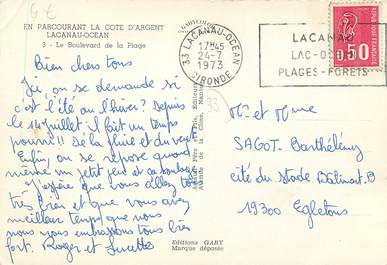 EN PARCOURANT LA COTE D'ARGENT
LACANAU-OCEAN
3 - Le Boulevard de la Plage
Bien chers tous
Ici, on se demande si
c'est l'été ou l'hiver? Depuis
le 14 Juillet il fait un temps
pourri!! De la pluie et du vent
Enfin, on se repose quand
même un petit peu et ça soulage
J'espère que vous allez tous
très bien et que vous avez
meilleur temps que nous
nous vous embrassons tous bien
fort. Roger et Lucette
Editions GABY
Marque déposée
33 LACANAU-OCEAN
17H45
24-7
1973
GIRONDE
LACANAU
PLAGES-FORETS
0,50
33
Mr et Mme
SAGOT-Barthélémy
cité du Stade Bâtiment B
19300 Egletons